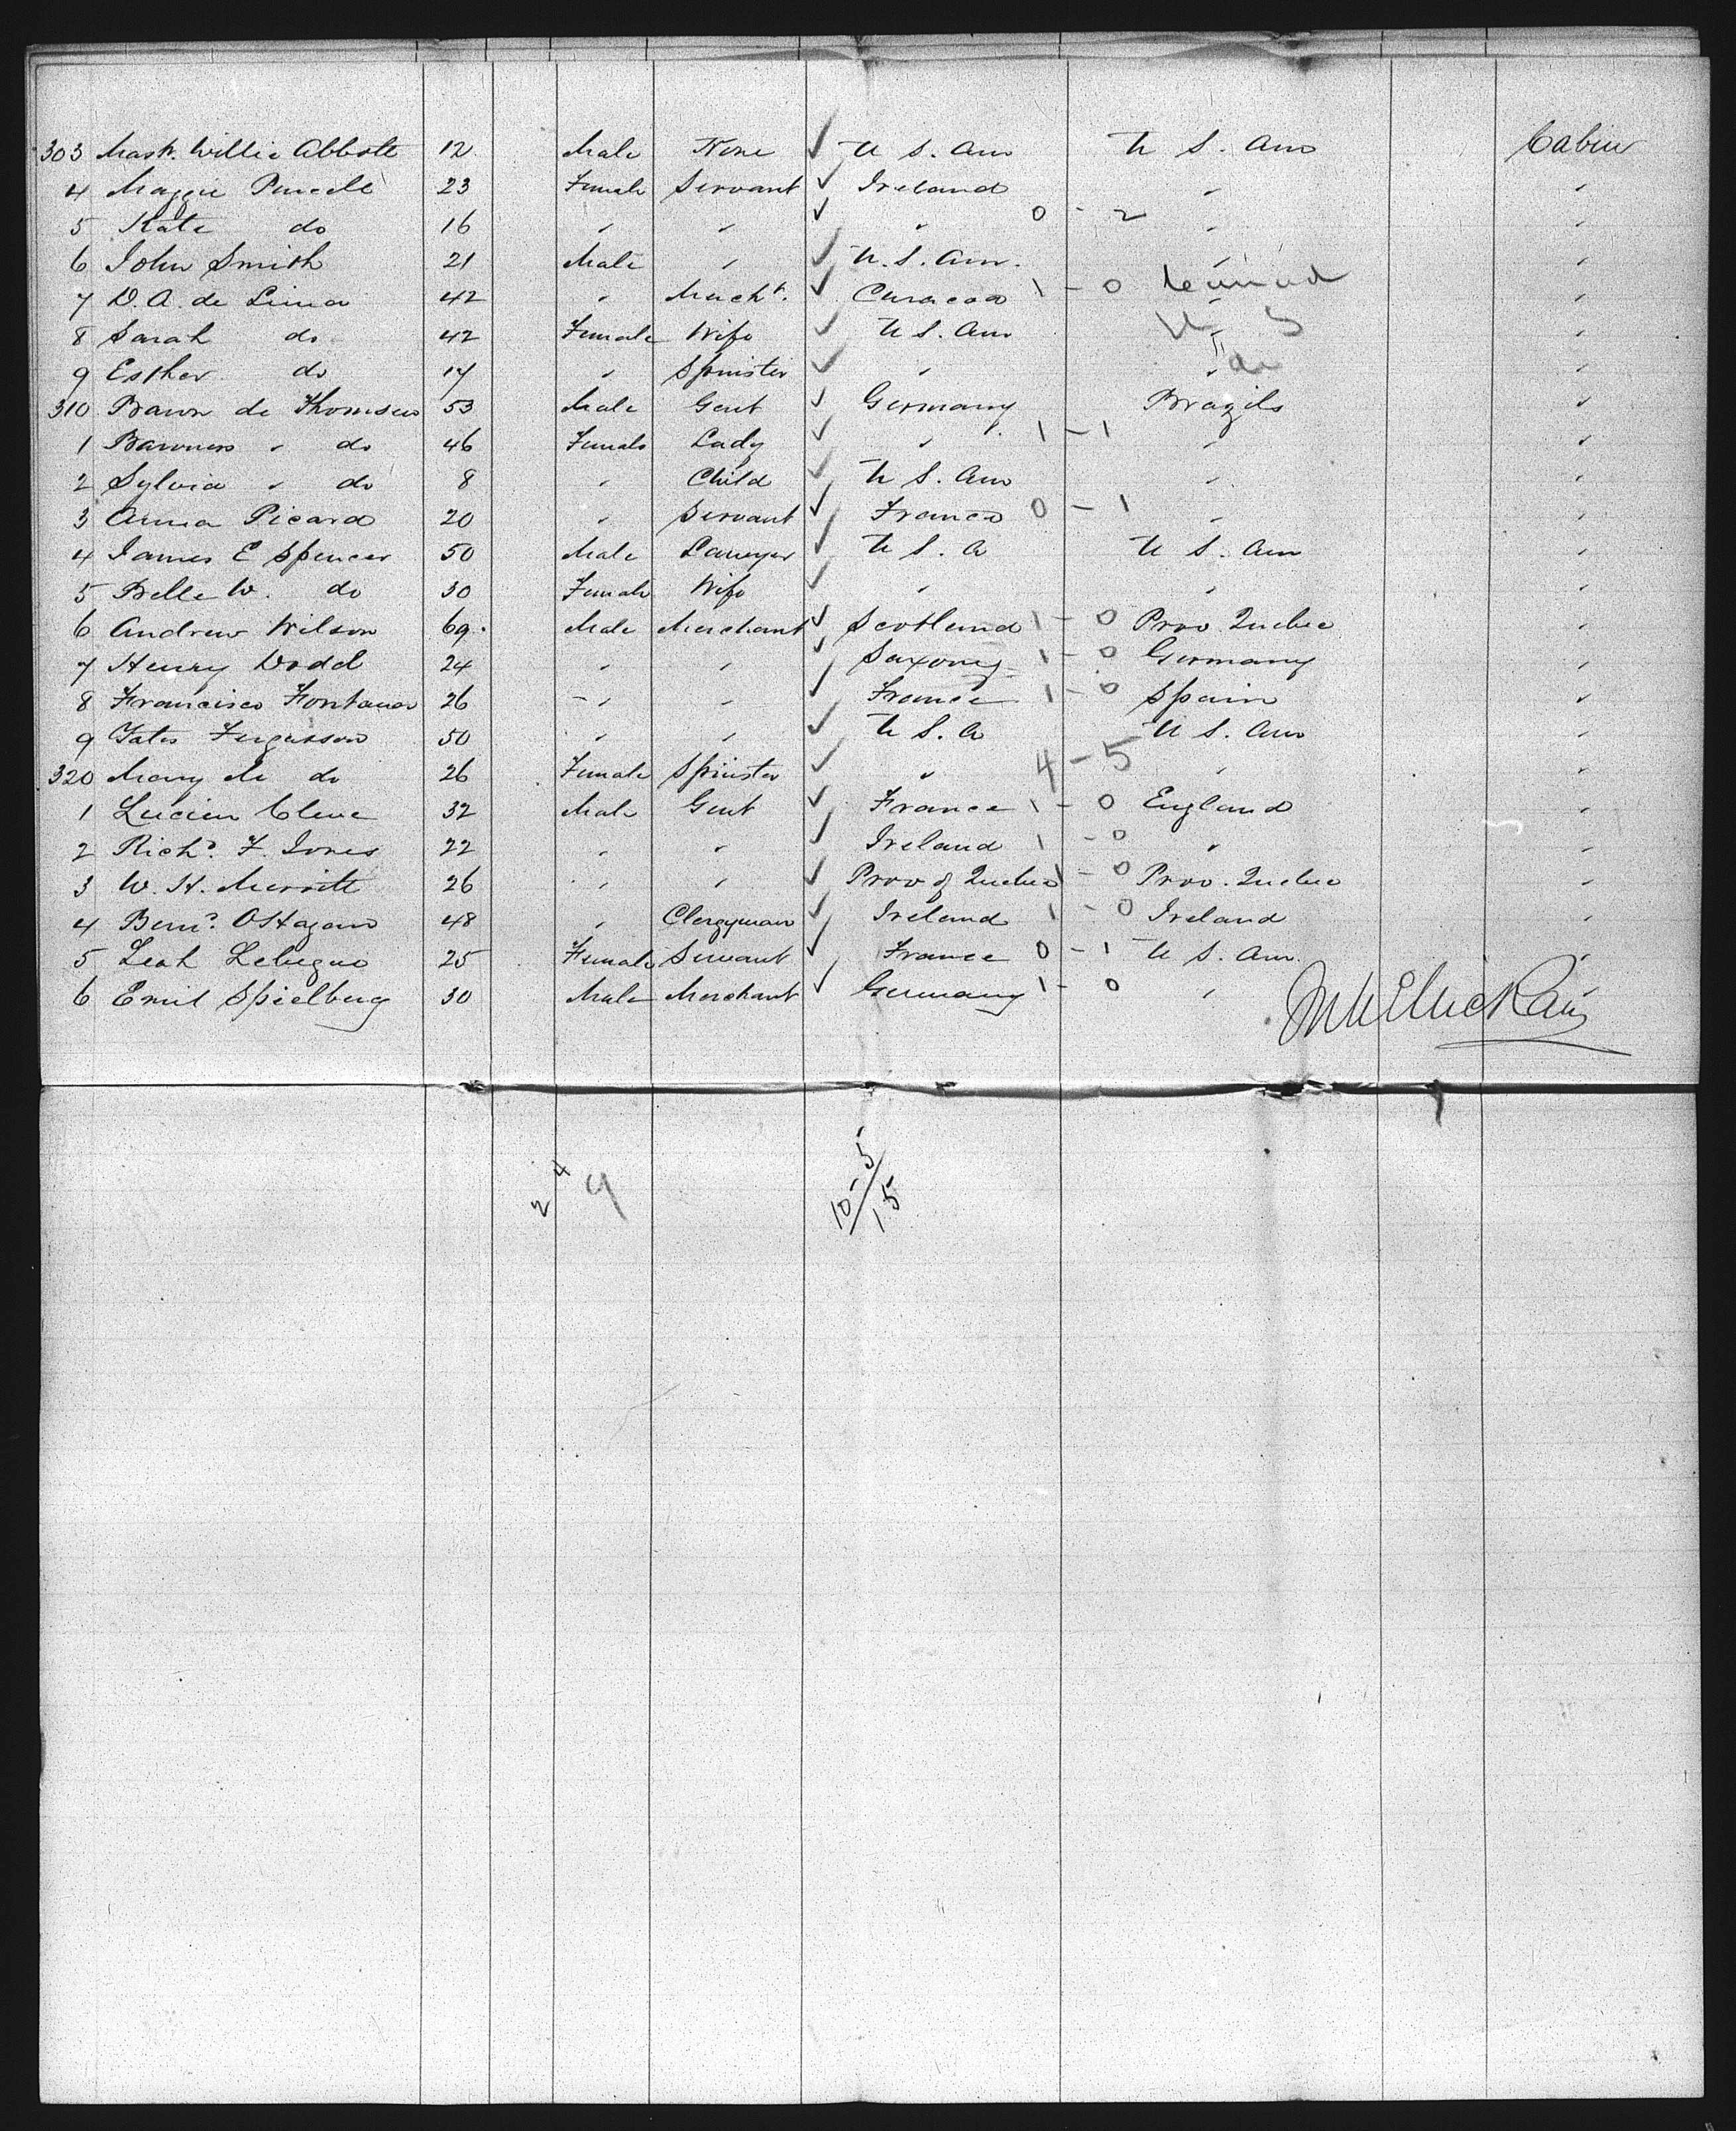 303 Mastr. Willie Abbott 12 Male None ✓ U S. Am U S. Am Cabin
4 Maggie Purcell 23 Female Servant ✓ Ireland " "
5 Kate do 16 " " ✓ " 0 - 2 " "
6 John Smith 21 Male " ✓ U. S. Am. " "
7 D. A. de Lima 42 " Mercht. ✓ Curacoa 1 - 0 " "
8 Sarah do 42 Female Wife ✓ U S. Am U S "
9 Esther do 17 " Spinster ✓ " " do "
310 Baron de Thomsen 53 Male Gent ✓ Germany Brazils "
1 Baroness " do 46 Female Lady ✓ " 1 - 1 " "
2 Sylvia " do 8 " Child ✓ U S. Am " "
3 Anna Picard 20 " Servant ✓ France 0 - 1 " "
4 James E Spencer 50 Male Lawyer ✓ U S. A U S. Am "
5 Belle W. do 30 Female Wife ✓ " " "
6 Andrew Wilson 69. Male Merchant ✓ Scotland 1 - 0 Prov Quebec "
7 Henry Dodd 24 " " ✓ Saxony 1 - 0 Germany "
8 Francisco Fontanar 26 " " ✓ France 1 - 0 Spain "
9 Yates Fergusson 50 " " ✓ U S. A U S. Am "
320 Mary M do 26 Female Spinster ✓ " 4 - 5 " "
1 Lucien Cleve 32 Male Gent ✓ France 1 - 0 England "
2 Richd. F. Jones 22 " " ✓ Ireland 1 - 0 " "
3 W. H. Merritt 26 " " ✓ Prov of Quebec 1 - 0 Prov. Quebec "
4 Benj. O'Hagan 48 " Clergyman ✓ Ireland 1 - 0 Ireland "
5 Leah 25 Female Servant ✓ France 0 - 1 U S. Am. "
6 Emil Spielberg 30 Male Merchant ✓ Germany 1 - 0 "
2 4 9
10 - 5
15